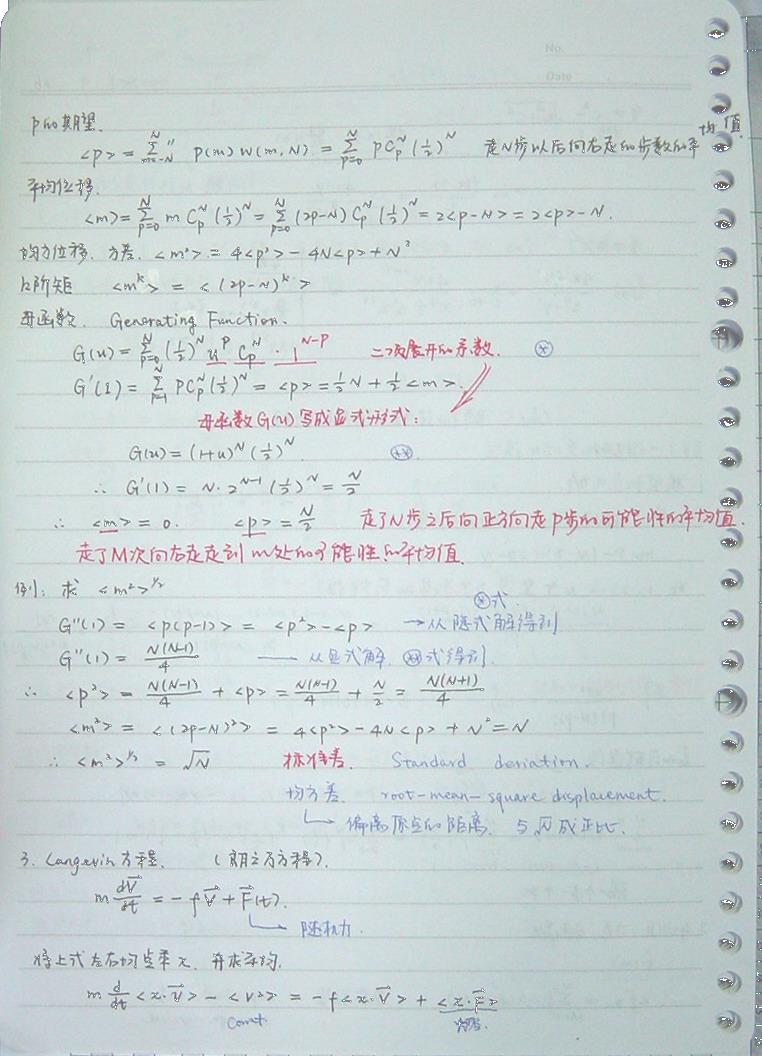 No.
Date
p的期望.
<p> = Σ_{m=-N}^{N}'' p(m) W(m,N) = Σ_{p=0}^{N} p C_p^N (1/2)^N 走N步以后向右走的步数的平均值
平均位移.
<m> = Σ_{p=0}^{N} m C_p^N (1/2)^N = Σ_{p=0}^{N} (2p-N) C_p^N (1/2)^N = 2<p-N> = 2<p>-N.
均方位移. 方差. <m²> = 4<p²> - 4N<p> + N²
k阶矩 <m^k> = <(2p-N)^k>
母函数. Generating Function.
G(u) = Σ_{p=0}^{N} (1/2)^N u^p C_p^N · 1^{N-p} 二项展开的系数. ⊛
G'(1) = Σ_{p=1}^{N} p C_p^N (1/2)^N = <p> = 1/2 N + 1/2 <m>.
母函数G(u)写成显式形式:
G(u) = (1+u)^N (1/2)^N. (**).
∴ G'(1) = N·2^{N-1} (1/2)^N = N/2
∴ <m> = 0. <p> = N/2 走了N步之后向正方向走p步的可能性的平均值.
走了M次向右走走到m处的可能性的平均值.
例: 求 <m²>^{1/2}
⊛式.
G''(1) = <p(p-1)> = <p²> - <p> → 从隐式解得到
G''(1) = N(N-1)/4 —— 从显式解. (**)式得到.
∴ <p²> = N(N-1)/4 + <p> = N(N-1)/4 + N/2 = N(N+1)/4
<m²> = <(2p-N)²> = 4<p²> - 4N<p> + N² = N
∴ <m²>^{1/2} = √N 标准差. Standard deviation.
均方差. root-mean-square displacement.
↳ 偏离原点的距离. 与√N成正比.
3. Langevin方程. (朗之万方程).
m dV⃗/dt = -fV⃗ + F⃗(t).
↳ 随机力.
将上式左右均点乘x. 并求平均.
m d/dt <x·v⃗> - <v²> = -f<x·v⃗> + <x·F⃗>
Const.